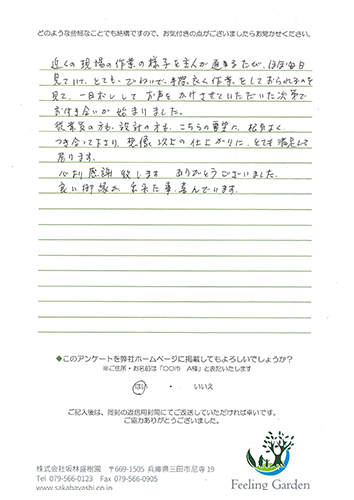 どのような些細なことでも結構ですので、お気付きの点がございましたらお聞かせください。
近くの現場の作業の様子を主人が通るたび、ほぼ毎日
見ていて、とても、ていねいで、手際良く作業をしておられるのを
見て、一目おしてお声をかけさせていただいた次第で
お付き合いが始まりました。
従業員の方も、設計の方も、こちらの要望に、
つき合って下さり、想像以上の仕上がりに、とても満足して
居ります。
心より感謝致します ありがとうございました。
良い御縁が出来た事、喜んでいます。
◆このアンケートを弊社ホームページに掲載してもよろしいでしょうか？
※ご住所・お名前は「○○市 A様」と表記いたします
はい ・ いいえ
ご記入後は、同封の返信用封筒にてご返送していただければ幸いです。
ご協力ありがとうございました。
株式会社坂林盛樹園 〒669-1505 兵庫県三田市尼寺 19
Tel 079-566-0123 Fax 079-566-0905
www.sakabayashi.co.jp
Feeling Garden